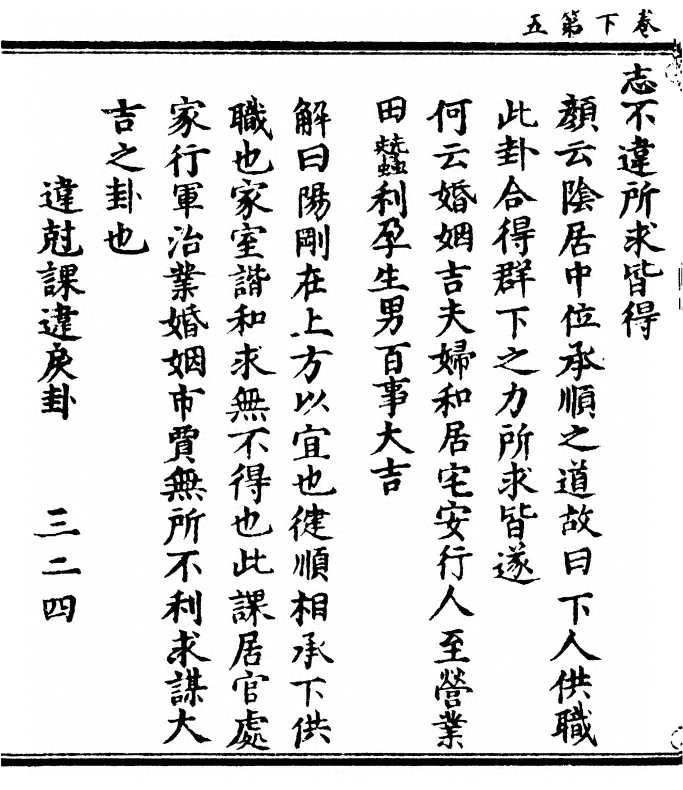 卷下第五
志不違所求皆得
顏云陰居中位承順之道故曰下人供職
此卦合得群下之力所求皆遂
何云婚姻吉夫婦和居宅安行人至營業
田蠶利孕生男百事大吉
解曰陽剛在上方以宜也健順相承下供
職也家室諧和求無不得也此課居官處
家行軍治業婚姻市賈無所不利求謀大
吉之卦也
違尅課違戾卦　三二四